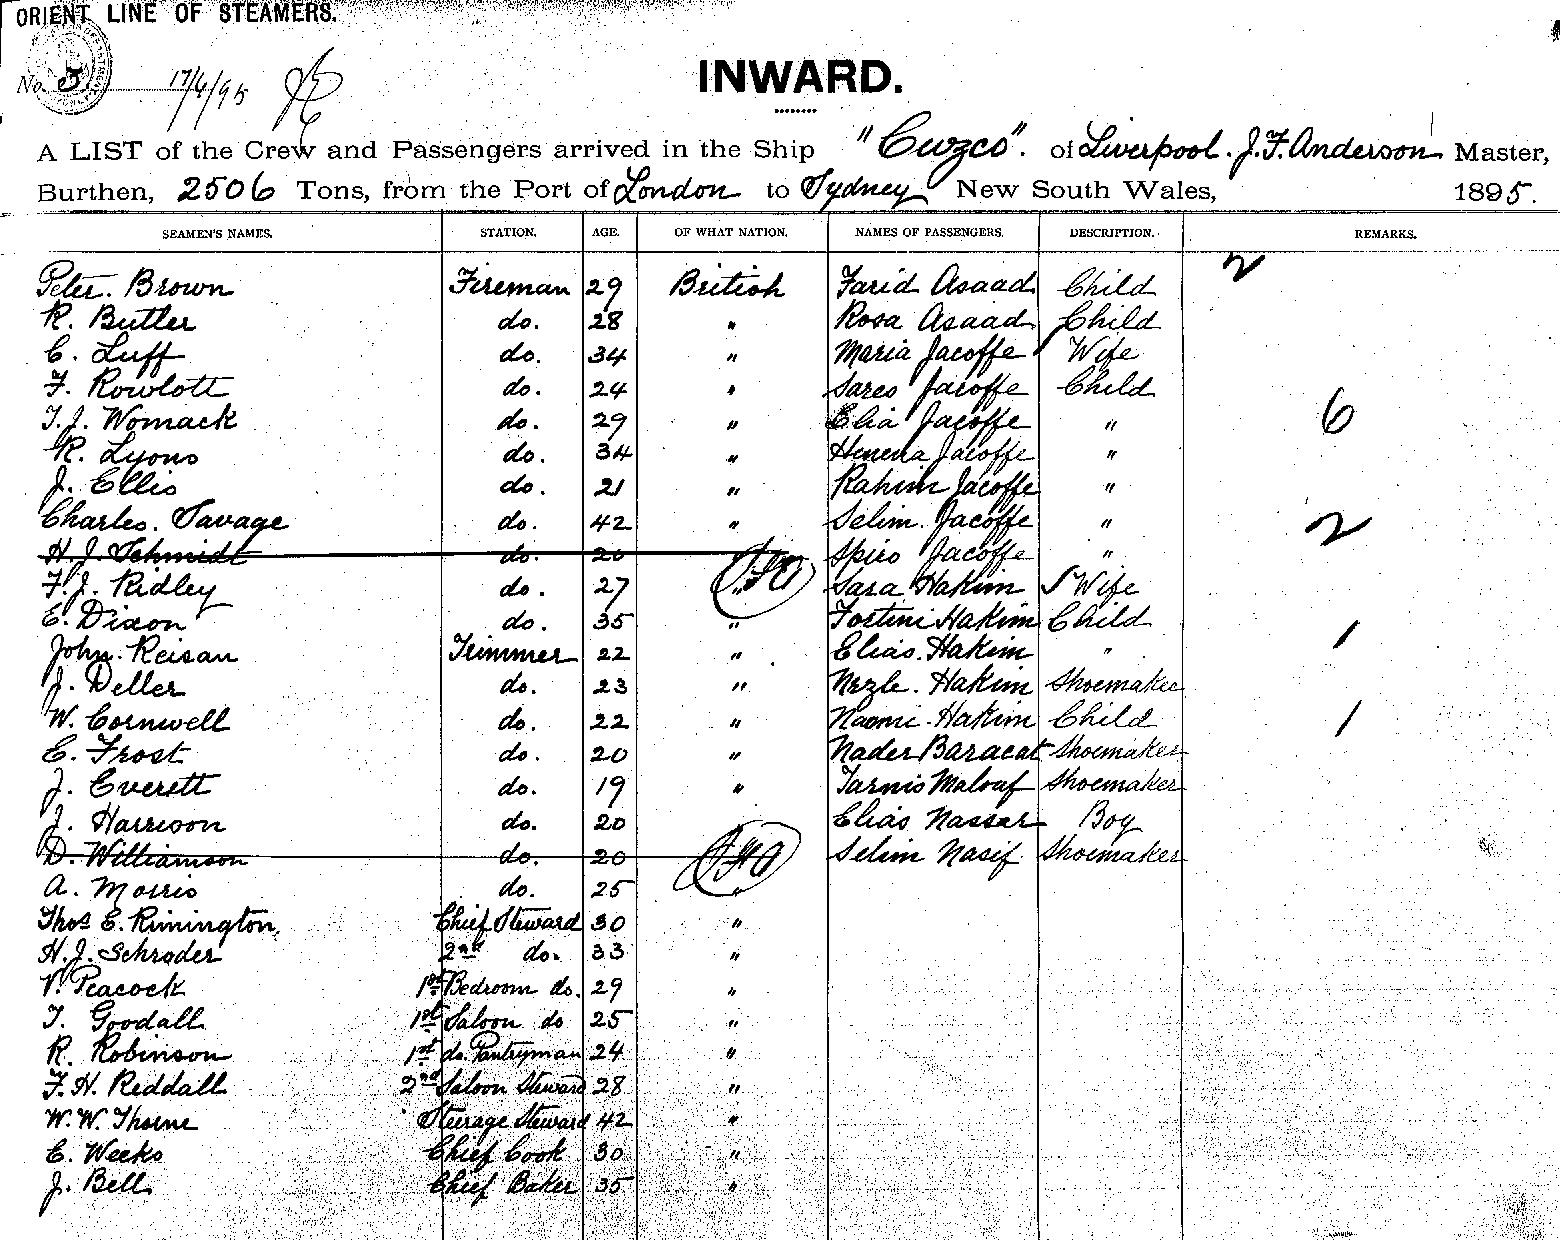 ORIENT LINE OF STEAMERS.
No. 5 17/4/95
INWARD.
A LIST of the Crew and Passengers arrived in the Ship "Cuzco". of Liverpool. J. F. Anderson Master,
Burthen, 2506 Tons, from the Port of London to Sydney New South Wales, 1895.
SEAMEN'S NAMES. STATION. AGE. OF WHAT NATION. NAMES OF PASSENGERS. DESCRIPTION. REMARKS.
Peter. Brown Fireman 29 British Farid Asaad Child 2
R. Butler do. 28 " Rosa Asaad Child
C. Luff do. 34 " Maria Jacoffe Wife
F. Rowlott do. 24 " Sares Jacoffe Child
T. J. Womack do. 29 " Elia Jacoffe " 6
R. Lyons do. 34 " Henena Jacoffe "
J. Ellis do. 21 " Rahim Jacoffe "
Charles. Savage do. 42 " Selim. Jacoffe " 2
H. J. Schmidt do. 20 Spiro Jacoffe "
F. J. Ridley do. 27 " Sara Hakim Wife
E. Dixon do. 35 " Fortini Hakim Child
John. Reisan Trimmer 22 " Elias. Hakim " 1
J. Deller do. 23 " Nezle. Hakim Shoemaker
W. Cornwell do. 22 " Naomi. Hakim Child 1
E. Frost do. 20 " Nader Baracat Shoemaker
J. Everett do. 19 " Tarnis Malouf Shoemaker
J. Harrison do. 20 Elias Nassar Boy
D. Williamson do. 20 Selim Nasif Shoemaker
A. Morris do. 25 "
Thos E. Rimington, Chief Steward 30 "
H. J. Schroder 2nd do. 33 "
V. Peacock 1st Bedroom do. 29 "
T. Goodall 1st Saloon do 25 "
R. Robinson 1st do. Pantryman 24 "
F. H. Reddall 2nd Saloon Steward 28 "
W. W. Thorne Steerage Steward 42 "
E. Weeks Chief Cook 30 "
J. Bell Chief Baker 35 "